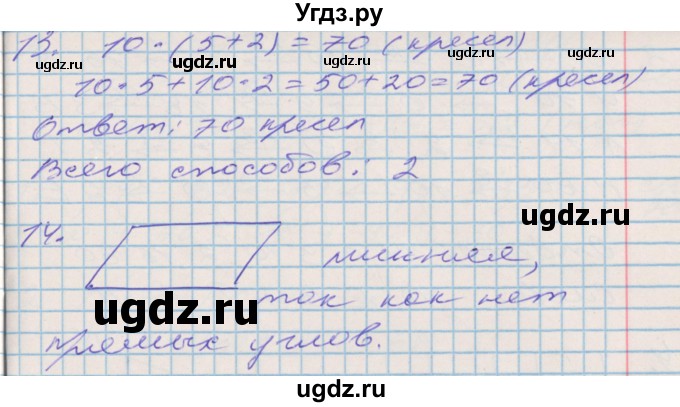 Угдз.ру
13. 10 · (5+2) = 70 (кресел)
10 · 5 + 10 · 2 = 50 + 20 = 70 (кресел)
Ответ: 70 кресел
Всего способов: 2
14. лишняя,
так как нет
прямых углов.
ugdz.ru
ugdz.ru
ugdz.ru
ugdz.ru
ugdz.ru
ugdz.ru
ugdz.ru
ugdz.ru
ugdz.ru
ugdz.ru
ugdz.ru